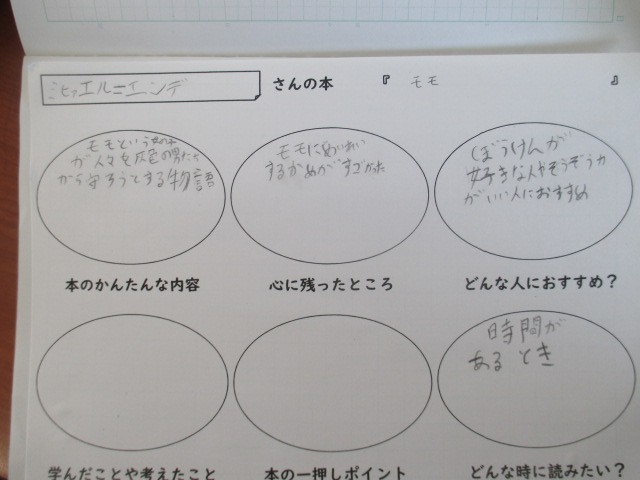 ミヒャエル=エンデ さんの本 『 モモ 』
モモという女の子
が人々を灰色の男たち
から守ろうとする物語
本のかんたんな内容
モモに
するかめがすごかった
心に残ったところ
ぼうけんが
好きな人やそうぞう力
がいい人におすすめ
どんな人におすすめ?
学んだことや考えたこと
本の一押しポイント
時間が
あるとき
どんな時に読みたい?